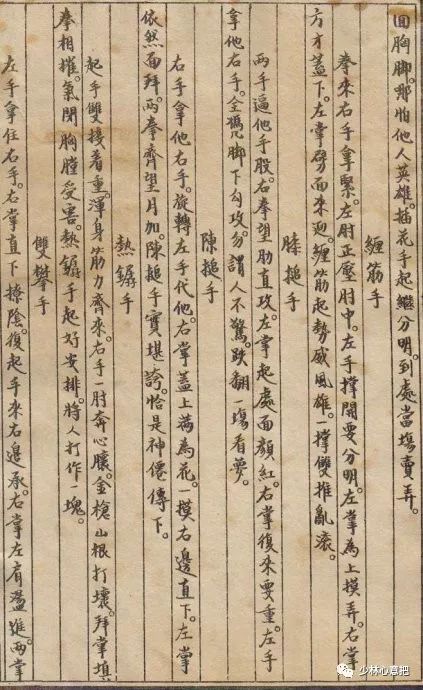 回胸脚。那怕他人英雄。插花手起繼分明。到處當場賣弄。
纏筋手
拳來右手拿緊。左肘正壓肘中。左手撑開要分明。左掌為上摸弄。右掌
方才盖下。左掌劈面來迎。纏筋起勢威風雄。一撑雙推亂滾。
膝搥手
兩手逼他手股。右拳望肋直攻。左掌起處面顏紅。右掌復來要重。左手
拿他右手。全憑脚下勾攻。勿謂人不驚。跌翻一場看夢。
陳搥手
右手拿他右手。旋轉左手代他。右掌盖上為花。一摸右邊直下。左掌
依然面拜。两拳齊望月加。陳搥手實堪誇。恰是神僊傳下。
熱手
起手雙接着重。渾身筋力齊來。右手一肘奔心懷。金槍山根打壞。拜掌填
拳相摧。氣閉胸膛受害。熱手起好安排。將人打作一塊。
雙攀手
左手拿住右手。右掌直下撩陰。復起手來右邊承。右掌左肩盪進。两掌
少林心意把